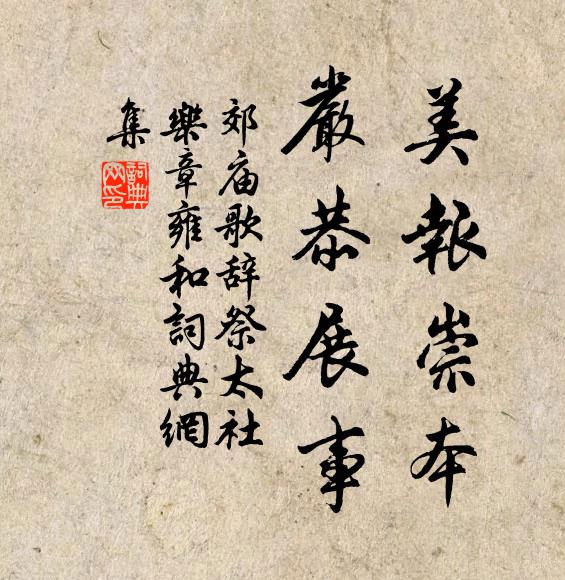 美報崇本
嚴恭展事
郊庙歌辞祭太社
樂章雍和詞典網
集
詞典網印